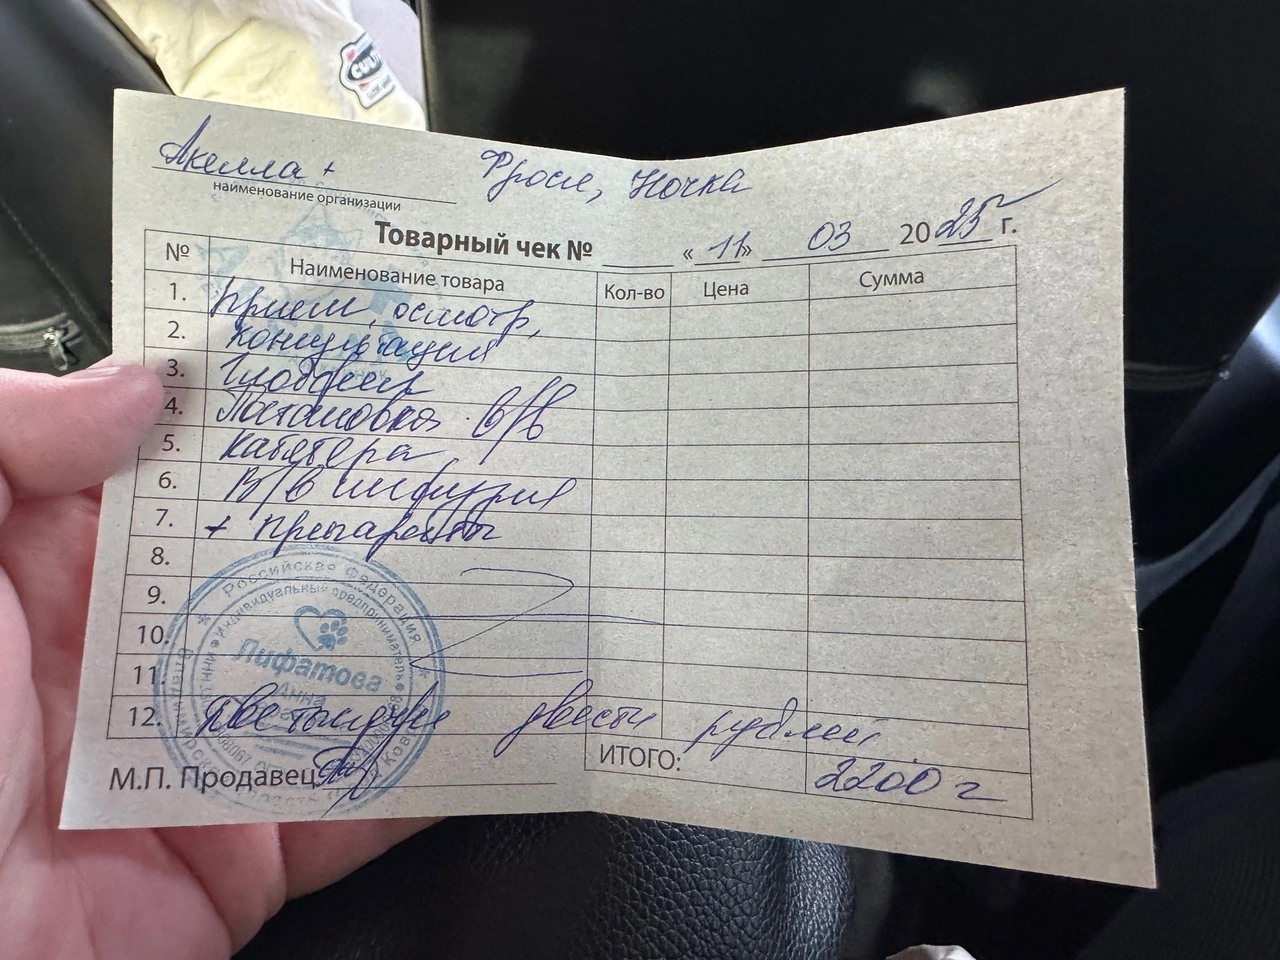 CULT
Акелла +
Фрося, Ночка
наименование организации
Товарный чек № «11» 03 2025 г.
№ Наименование товара Кол-во Цена Сумма
1. Прием, осмотр,
2. консультация
3. Глобфел
4. Постановка в/в
5. катетера
6. В/в инфузия
7. + препараты
8.
9.
10.
11.
12. Две тысячи двести рублей
ИТОГО: 2200 г
М.П. Продавец
Российская Федерация
Индивидуальный предприниматель
Лифатова
Анна